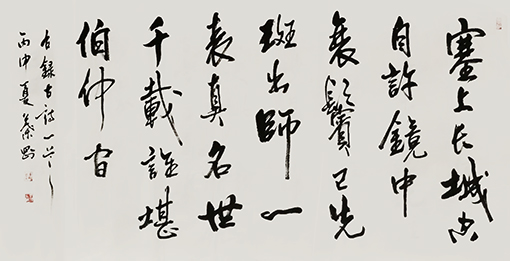 塞上长城空
自許鏡中
衰鬢已先
斑出師一
表真名世
千載誰堪
伯仲间
右録古詩一首
丙申夏